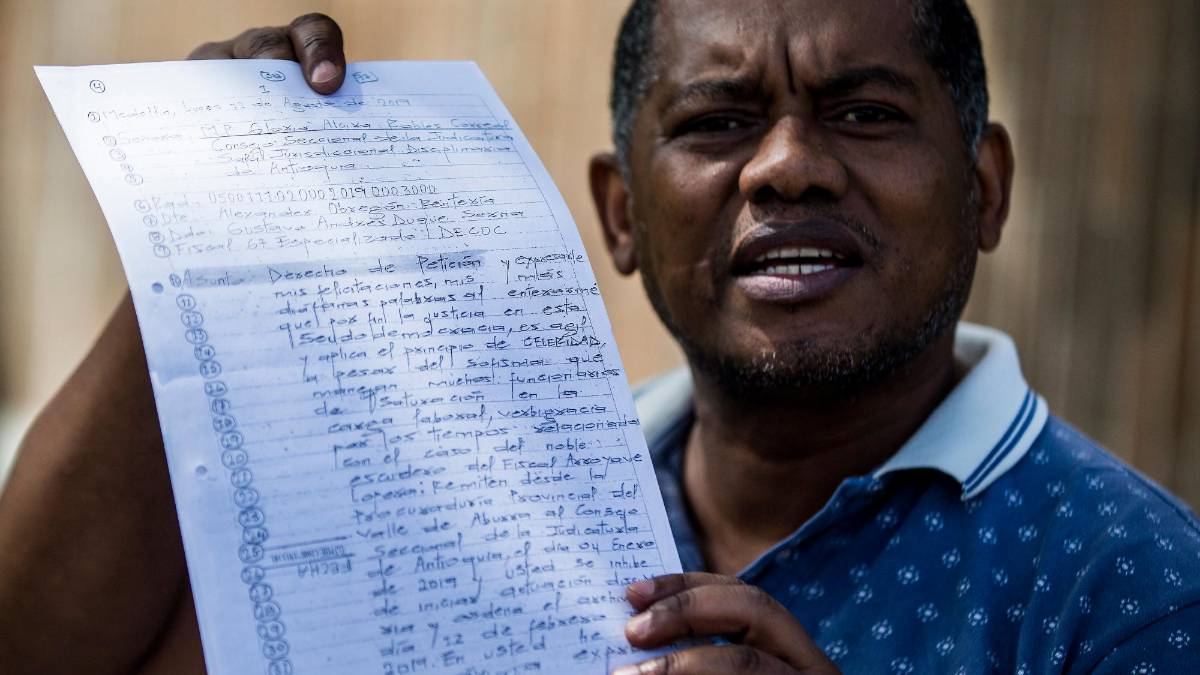 4
1
① Medellín, Lunes 12 de Agosto de 2019
② Señora: M.P. Gloria Alcira Robles Correal
③ Consejo Seccional de la Judicatura
④ Sala Jurisdiccional Disciplinaria
⑤ de Antioquia
⑥ Rad: 050011102000201900030000
⑦ Dte: Alexander Obregón Rentería
⑧ Ddo: Gustavo Andrés Duque Serna
⑨ Fiscal 67 Especializado: DECOC
⑩ Asunto: Derecho de Petición y expresarle
⑪ mis felicitaciones, mis más
diáfanas palabras al enterarme
⑬ que por fin la justicia en esta
seudodemocracia, es agil
y aplica el principio de CELERIDAD,
a pesar del sofisma que
manejan muchos funcionarios
de saturación en la
carga laboral, verbigracia
por los tiempos relacionados
con el caso del noble
escudero del Fiscal Arroyave
Remiten desde la
Procuraduría Provincial del
Valle de Aburrá al Consejo
Seccional de la Judicatura
de Antioquia, el día 04 Enero
FECHA
de 2019 y usted se inhibe
de iniciar actuación
ria y ordena el
día 12 de febrero
2019. En usted he